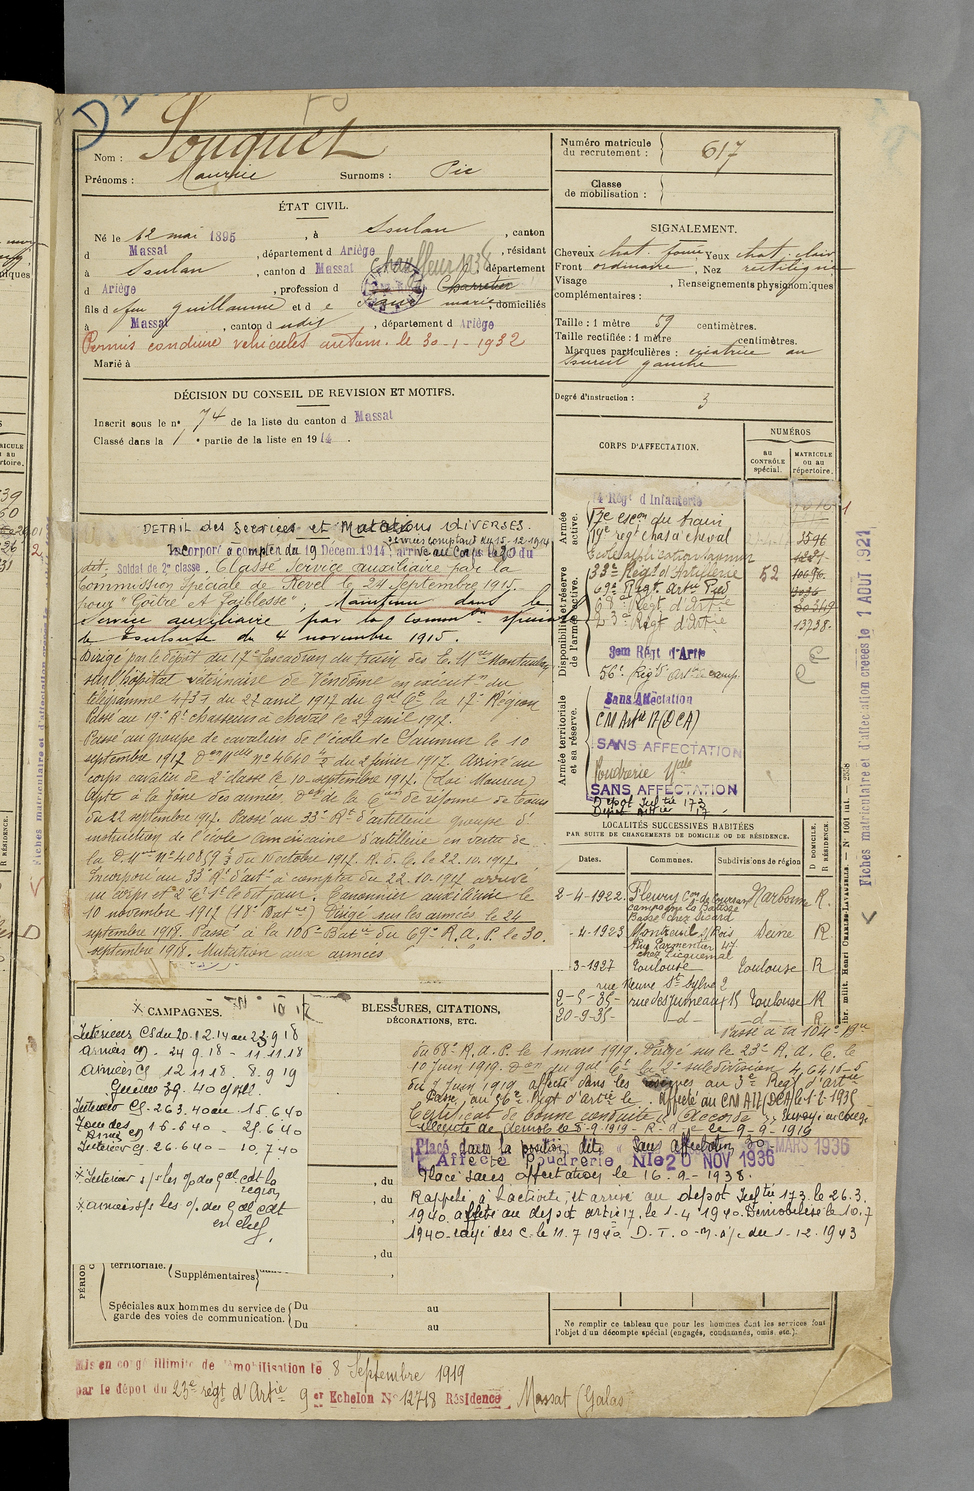 Nom : Souquet
Prénoms : Maurice Surnoms : Pic
Numéro matricule du recrutement : 617
Classe de mobilisation :
ÉTAT CIVIL.
Né le 12 mai 1895, à Soulan, canton
d Massat, département d Ariège, résidant
à Soulan, canton d Massat, département
d Ariège, profession d Charretier chauffeur 1938
fils d feu guillaume et d e marie, domiciliés
à Massat, canton d udit, département d Ariège
Permis conduire vehicules autom. le 30-1-1932
Marié à
SIGNALEMENT.
Cheveux chat. foncé Yeux chat. clair
Front ordinaire, Nez rectiligne
Visage , Renseignements physiognomiques
complémentaires :
Taille : 1 mètre 59 centimètres.
Taille rectifiée : 1 mètre centimètres.
Marques particulières : cicatrice au
sourcil gauche
Degré d'instruction : 3
DÉCISION DU CONSEIL DE REVISION ET MOTIFS.
Inscrit sous le n° 74 de la liste du canton d Massat
Classé dans la 1e partie de la liste en 1914.
CORPS D'AFFECTATION.
NUMÉROS
au CONTRÔLE spécial.
MATRICULE ou au répertoire.
Armée active.
Disponibilité et réserve de l'armée active.
Armée territoriale et sa réserve.
Régt d'Infanterie
17e escon du train
19e regt chas à cheval 3596
33e Régt d'Artillerie 52
69e Régt Artie Pied
68e Régt d'Artie
23e Régt d'Artie 13738
3em Régt d'Artie
56e Régt Artie camp.
Sans Affectation
CM Artie 17 (DCA)
SANS AFFECTATION
Poudrerie Nale
SANS AFFECTATION
Dépot Inftie 173
Dépot Artie 17
DETAIL des Services et Mutations DIVERSES.
Services comptant du 15-12-1914
Incorporé à compter du 19 Décem. 1914, arrivé au Corps le 20 du
dit. Soldat de 2e classe. Classé Service auxiliaire par la
Commission Spéciale de Revel le 24 Septembre 1915.
pour "Goître et faiblesse", Maintenu dans le
service auxiliaire par la Common spéciale
de Toulouse du 4 novembre 1915.
Dirigé par le dépôt du 17e Escadron du train des E. Mre Montauban
sur l'hôpital vétérinaire de Vendôme en exécuton du
télégramme 4737 du 27 avril 1917 du gal Ct la 17e Région
Passé au 19e Rt chasseurs à cheval le 27 avril 1917.
Passé au groupe de cavaliers de l'école de Saumur le 10
septembre 1917 Don Mlle n° 4640 du 2 février 1917. Arrivé au
corps cavalier de 2e classe le 10 septembre 1917. (Loi Mourier)
Apte à la Zône des armées. Don de la Con de réforme de Tours
du 22 septembre 1917. Passé au 33e Rt d'artillerie groupe d'
instruction de l'école américaine d'artillerie en vertu de
la D. Mlle n° 40859 du 15 octobre 1917. R. d. C. le 22.10.1917.
Incorporé au 33e Rt d'art. à compter du 22.10.1917 arrivé
au corps et 2e Ct le dit jour. Canonnier auxiliaire le
10 novembre 1917 (18e Batrie) Dirigé sur les armées le 24
septembre 1918. Passé à la 106e Batrie du 69e R.A.P. le 30.
septembre 1918. Mutation aux armées
LOCALITÉS SUCCESSIVES HABITÉES
PAR SUITE DE CHANGEMENTS DE DOMICILE OU DE RÉSIDENCE.
Dates. Communes. Subdivisions de région D DOMICILE. R RÉSIDENCE.
2-4-1922. Fleury con de coursan Narbonne R.
campagne la Bâtisse
Basse chez Sicard
-4-1923 Montreuil s/s Bois Seine R
Rue Parmentier 47
chez Licquernal
3-1927 Toulouse Toulouse R
rue Neuve St Sylve 2
2-5-35- rue des Jumeaux 15 Toulouse R
20-9-35- -d- -d- R
CAMPAGNES.
Interieur CS du 20.12.14 au 23 9 18
Armées CD. 24.9.18 - 11.11.18
Armées CS 12.11.18. 8.9.19
Guerre 39.40 c/All.
Interieur CS. 26 3.40 au 15.6.40
Zone des Armées CD 16.6.40 - 25.6.40
Interieur CS. 26.6.40 - 10.7.40
x Interieur s/s les o/ du Gal cdt la
region
x armées s/s les o/ du Gal cdt
en chef.
BLESSURES, CITATIONS,
DÉCORATIONS, ETC.
Passé à la 104e Brie
du 68e R.A.P. le 1 mars 1919. Dirigé sur le 23e R.A.C. le
10 Juin 1919. Don du gal Ct la 2e subdivision 4,6415-5
du 7 Juin 1919 affecté dans les réserves au 3e Régt d'artie
Passé au 56e Régt d'artie le . Affecté au CM A 17 (DCA) le 1-2-1935
Certificat de bonne conduite "Accordé", renvoyé en congé
illimité de démob le 8-9-1919 - R. d. C. le 9-9-1919
Placé dans la position dite "Sans affectation" 30 MARS 1936
Affecté Poudrerie Nle 20 NOV 1936
Placé sans affectation le 16.9.1938.
Rappelé à l'activité, et arrivé au dépot Inftie 173. le 26.3.
1940. affecté au depot artie 17. le 1-4 1940. Démobilisé le 10.7
1940. rayé des c. le 11.7 1940. D.T.O.M. à/c du 1-12-1943
, du
, du
, du
territoriale. Supplémentaires
Spéciales aux hommes du service de garde des voies de communication. Du au
Du au
Ne remplir ce tableau que pour les hommes dont les services font
l'objet d'un décompte spécial (engagés, condamnés, omis, etc.).
Mis en congé illimité de démobilisation le 8 Septembre 1919
par le dépot du 23e régt d'Artie 9 er Echelon N° 12718 Résidence Massat (Galas)
Fiches matriculaire et d'affectation créées le 1 AOUT 1921